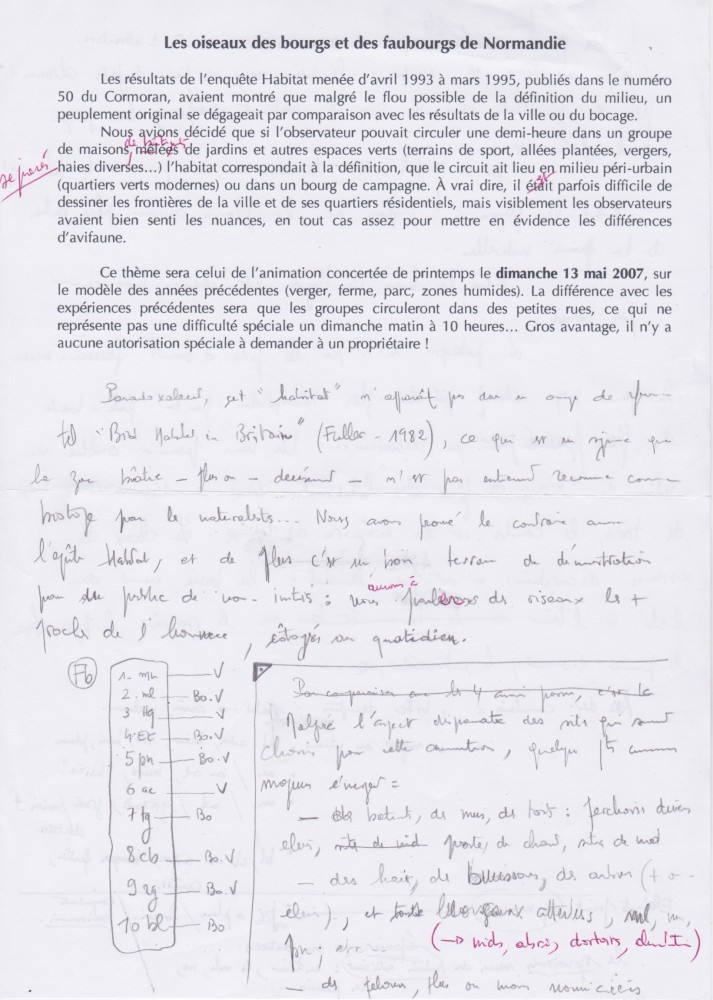 Les oiseaux des bourgs et des faubourgs de Normandie
Les résultats de l'enquête Habitat menée d'avril 1993 à mars 1995, publiés dans le numéro
50 du Cormoran, avaient montré que malgré le flou possible de la définition du milieu, un
peuplement original se dégageait par comparaison avec les résultats de la ville ou du bocage.
Nous avions décidé que si l'observateur pouvait circuler une demi-heure dans un groupe
de maisons, mêlées de jardins et autres espaces verts (terrains de sport, allées plantées, vergers,
haies diverses...) l'habitat correspondait à la définition, que le circuit ait lieu en milieu péri-urbain
(quartiers verts modernes) ou dans un bourg de campagne. À vrai dire, il était parfois difficile de
dessiner les frontières de la ville et de ses quartiers résidentiels, mais visiblement les observateurs
avaient bien senti les nuances, en tout cas assez pour mettre en évidence les différences
d'avifaune.
Ce thème sera celui de l'animation concertée de printemps le dimanche 13 mai 2007, sur
le modèle des années précédentes (verger, ferme, parc, zones humides). La différence avec les
expériences précédentes sera que les groupes circuleront dans des petites rues, ce qui ne
représente pas une difficulté spéciale un dimanche matin à 10 heures... Gros avantage, il n'y a
aucune autorisation spéciale à demander à un propriétaire !
Paradoxalement, cet "habitat" n'apparaît pas dans un ouvrage de
tel "Bird Habitats in Britain" (Fuller - 1982), ce qui est un signe que
la zone bâtie - plus ou - densément - n'est pas reconnue comme
biotope par les naturalistes... Nous avons prouvé le contraire avec
l'enquête Habitat, et de plus c'est un bon terrain de démonstration
pour du public de non-initiés : nous des oiseaux les +
proches de l'homme, côtoyés au quotidien.
Fb
1. mn V
2. ml Bo.V
3 Hg V
4. Et Bo.V
5 pn Bo.V
6 ac V
7 tg Bo
8 cb Bo.V
9 rg Bo.V
10 bl Bo
Malgré l'aspect disparate des sites qui seront
choisis pour cette animation, quelques pts communs
majeurs émergent :
- des bâtiments, des murs, des toits : perchoirs divers
élevés, postes de chant, sites de nid
- des haies, des buissons, des arbres (+ o -
élevés),
(→ nids, abris, dortoirs,
- des pelouses, plus ou moins